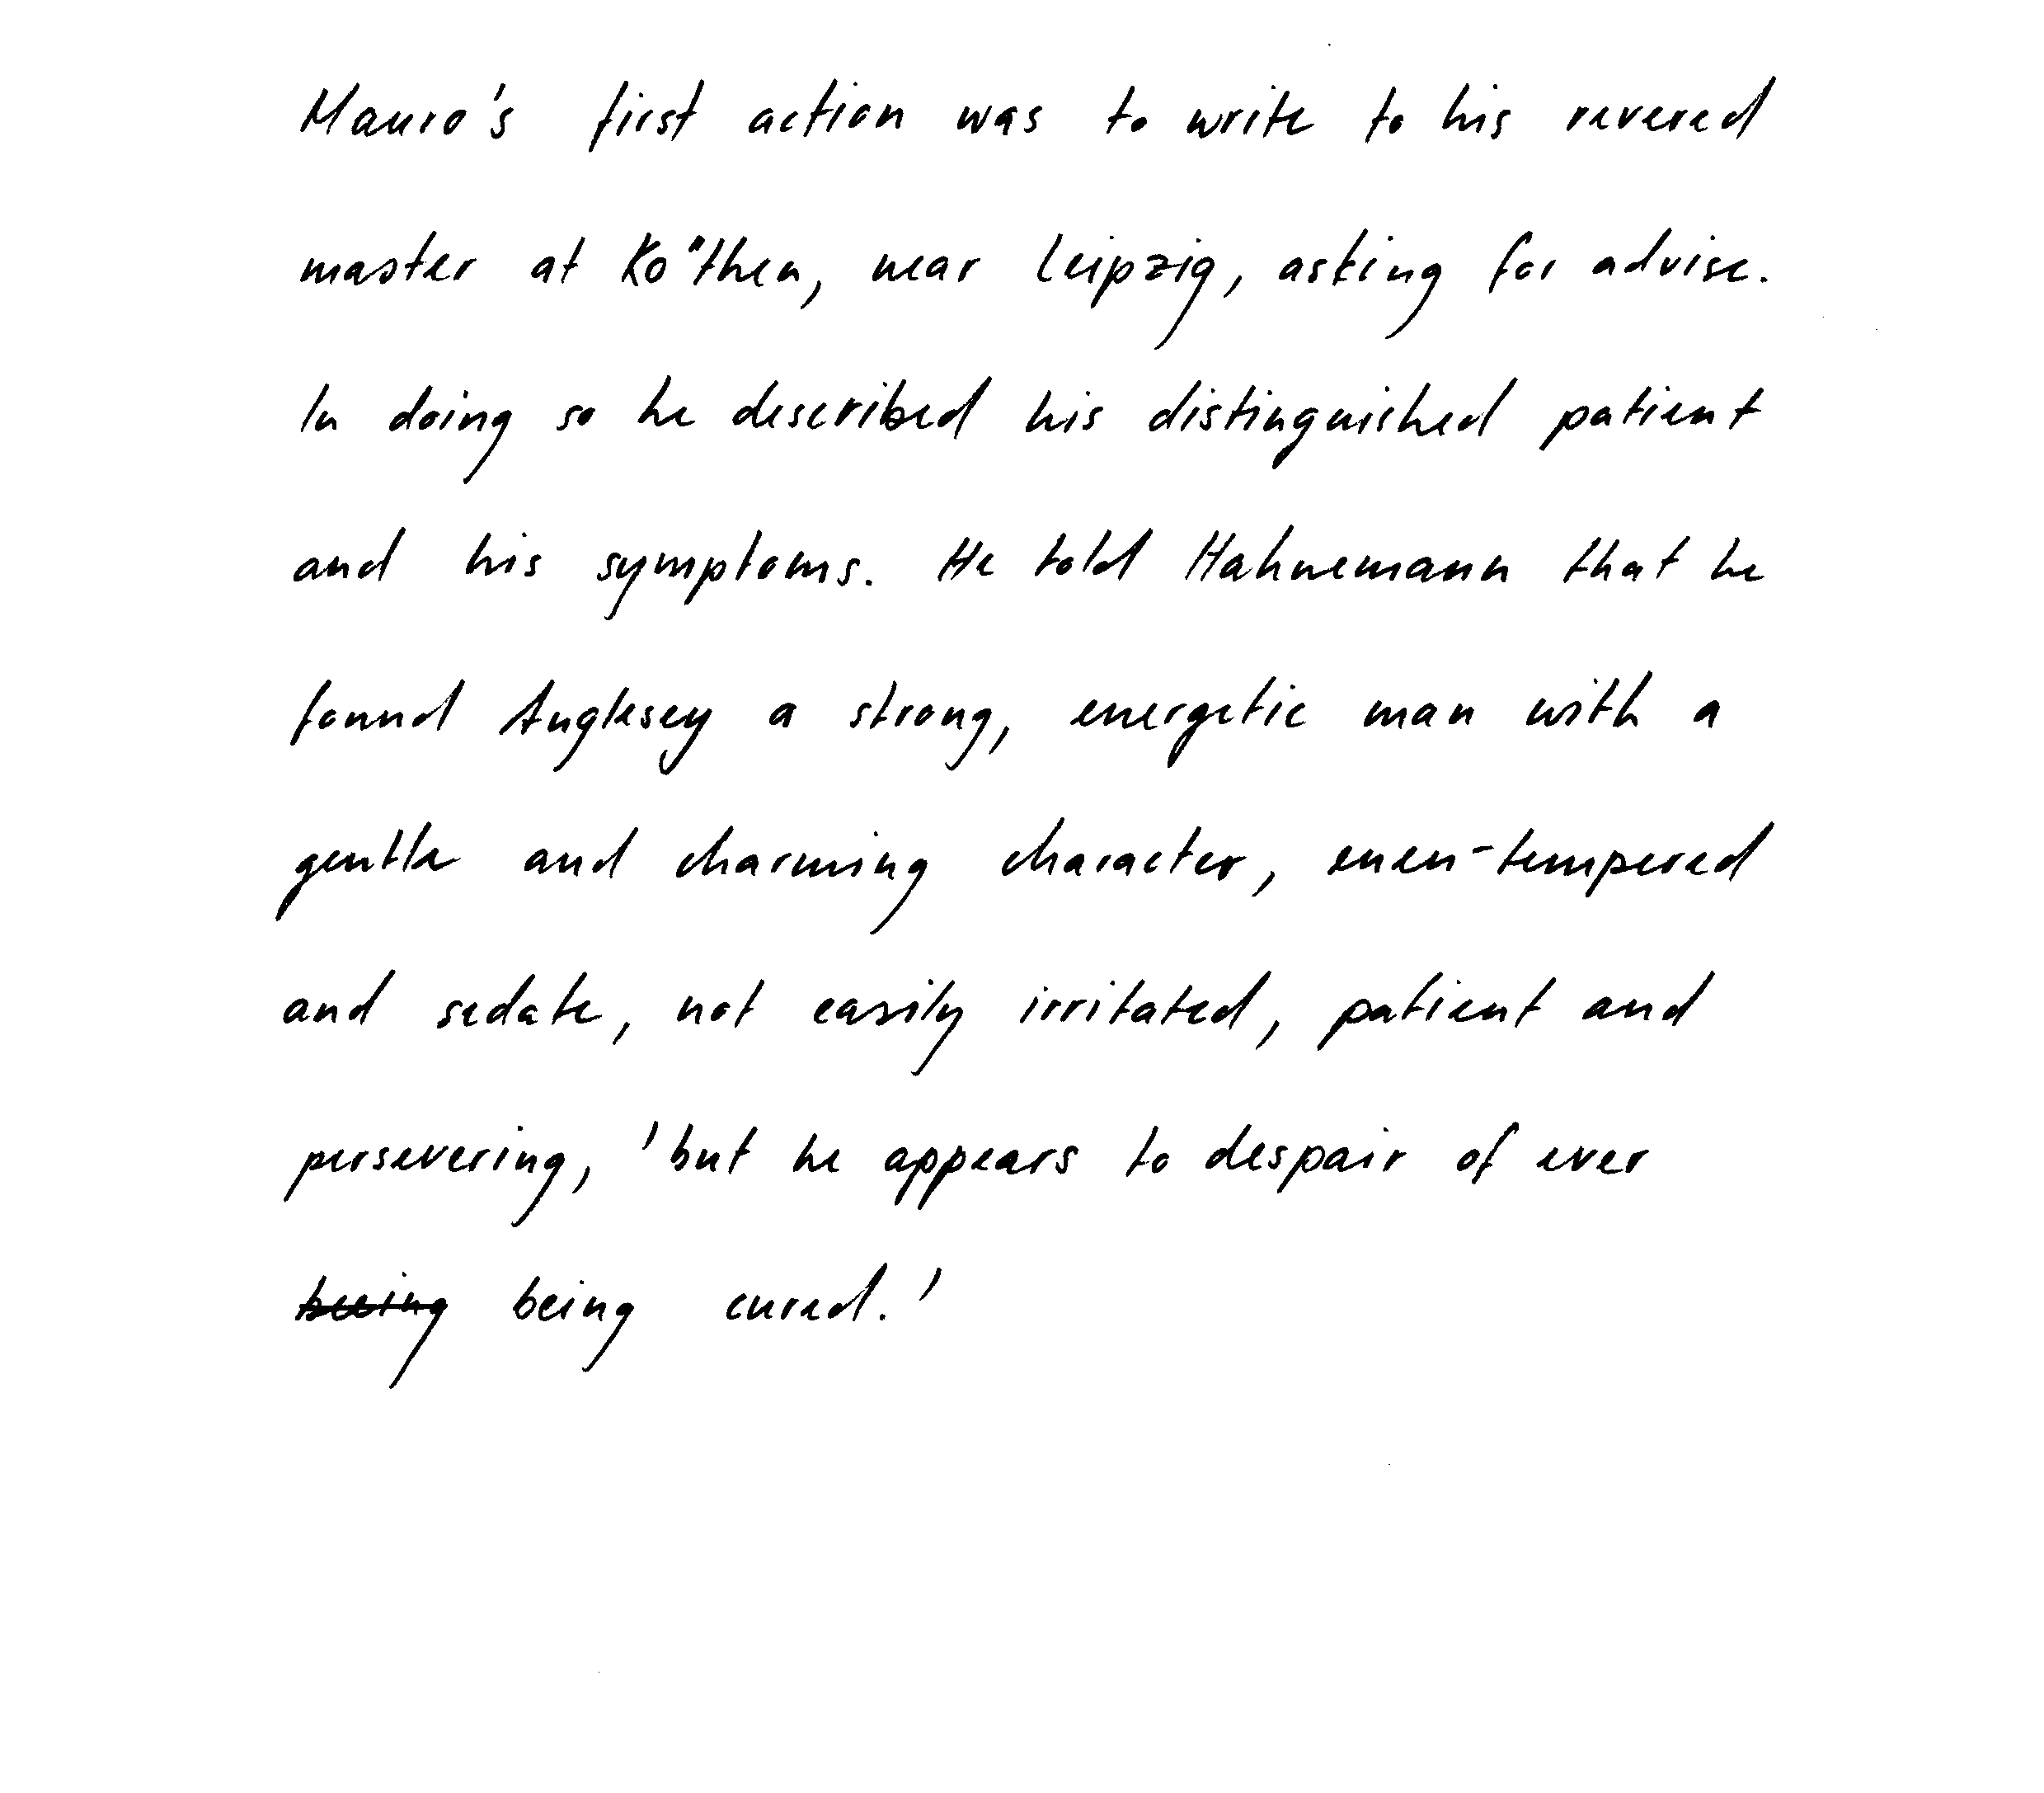 Mauro's first action was to write to his revered
master at Ko"then, near Leipzig, asking for advise.
In doing so he described his distinguished patient
and his symptoms. He told Hahnemann that he
found Anglesey a strong, energetic man with a
gentle and charming character, even-tempered
and sedate, not easily irritated, patient and
persevering, 'but he appears to despair of ever
being cured.'